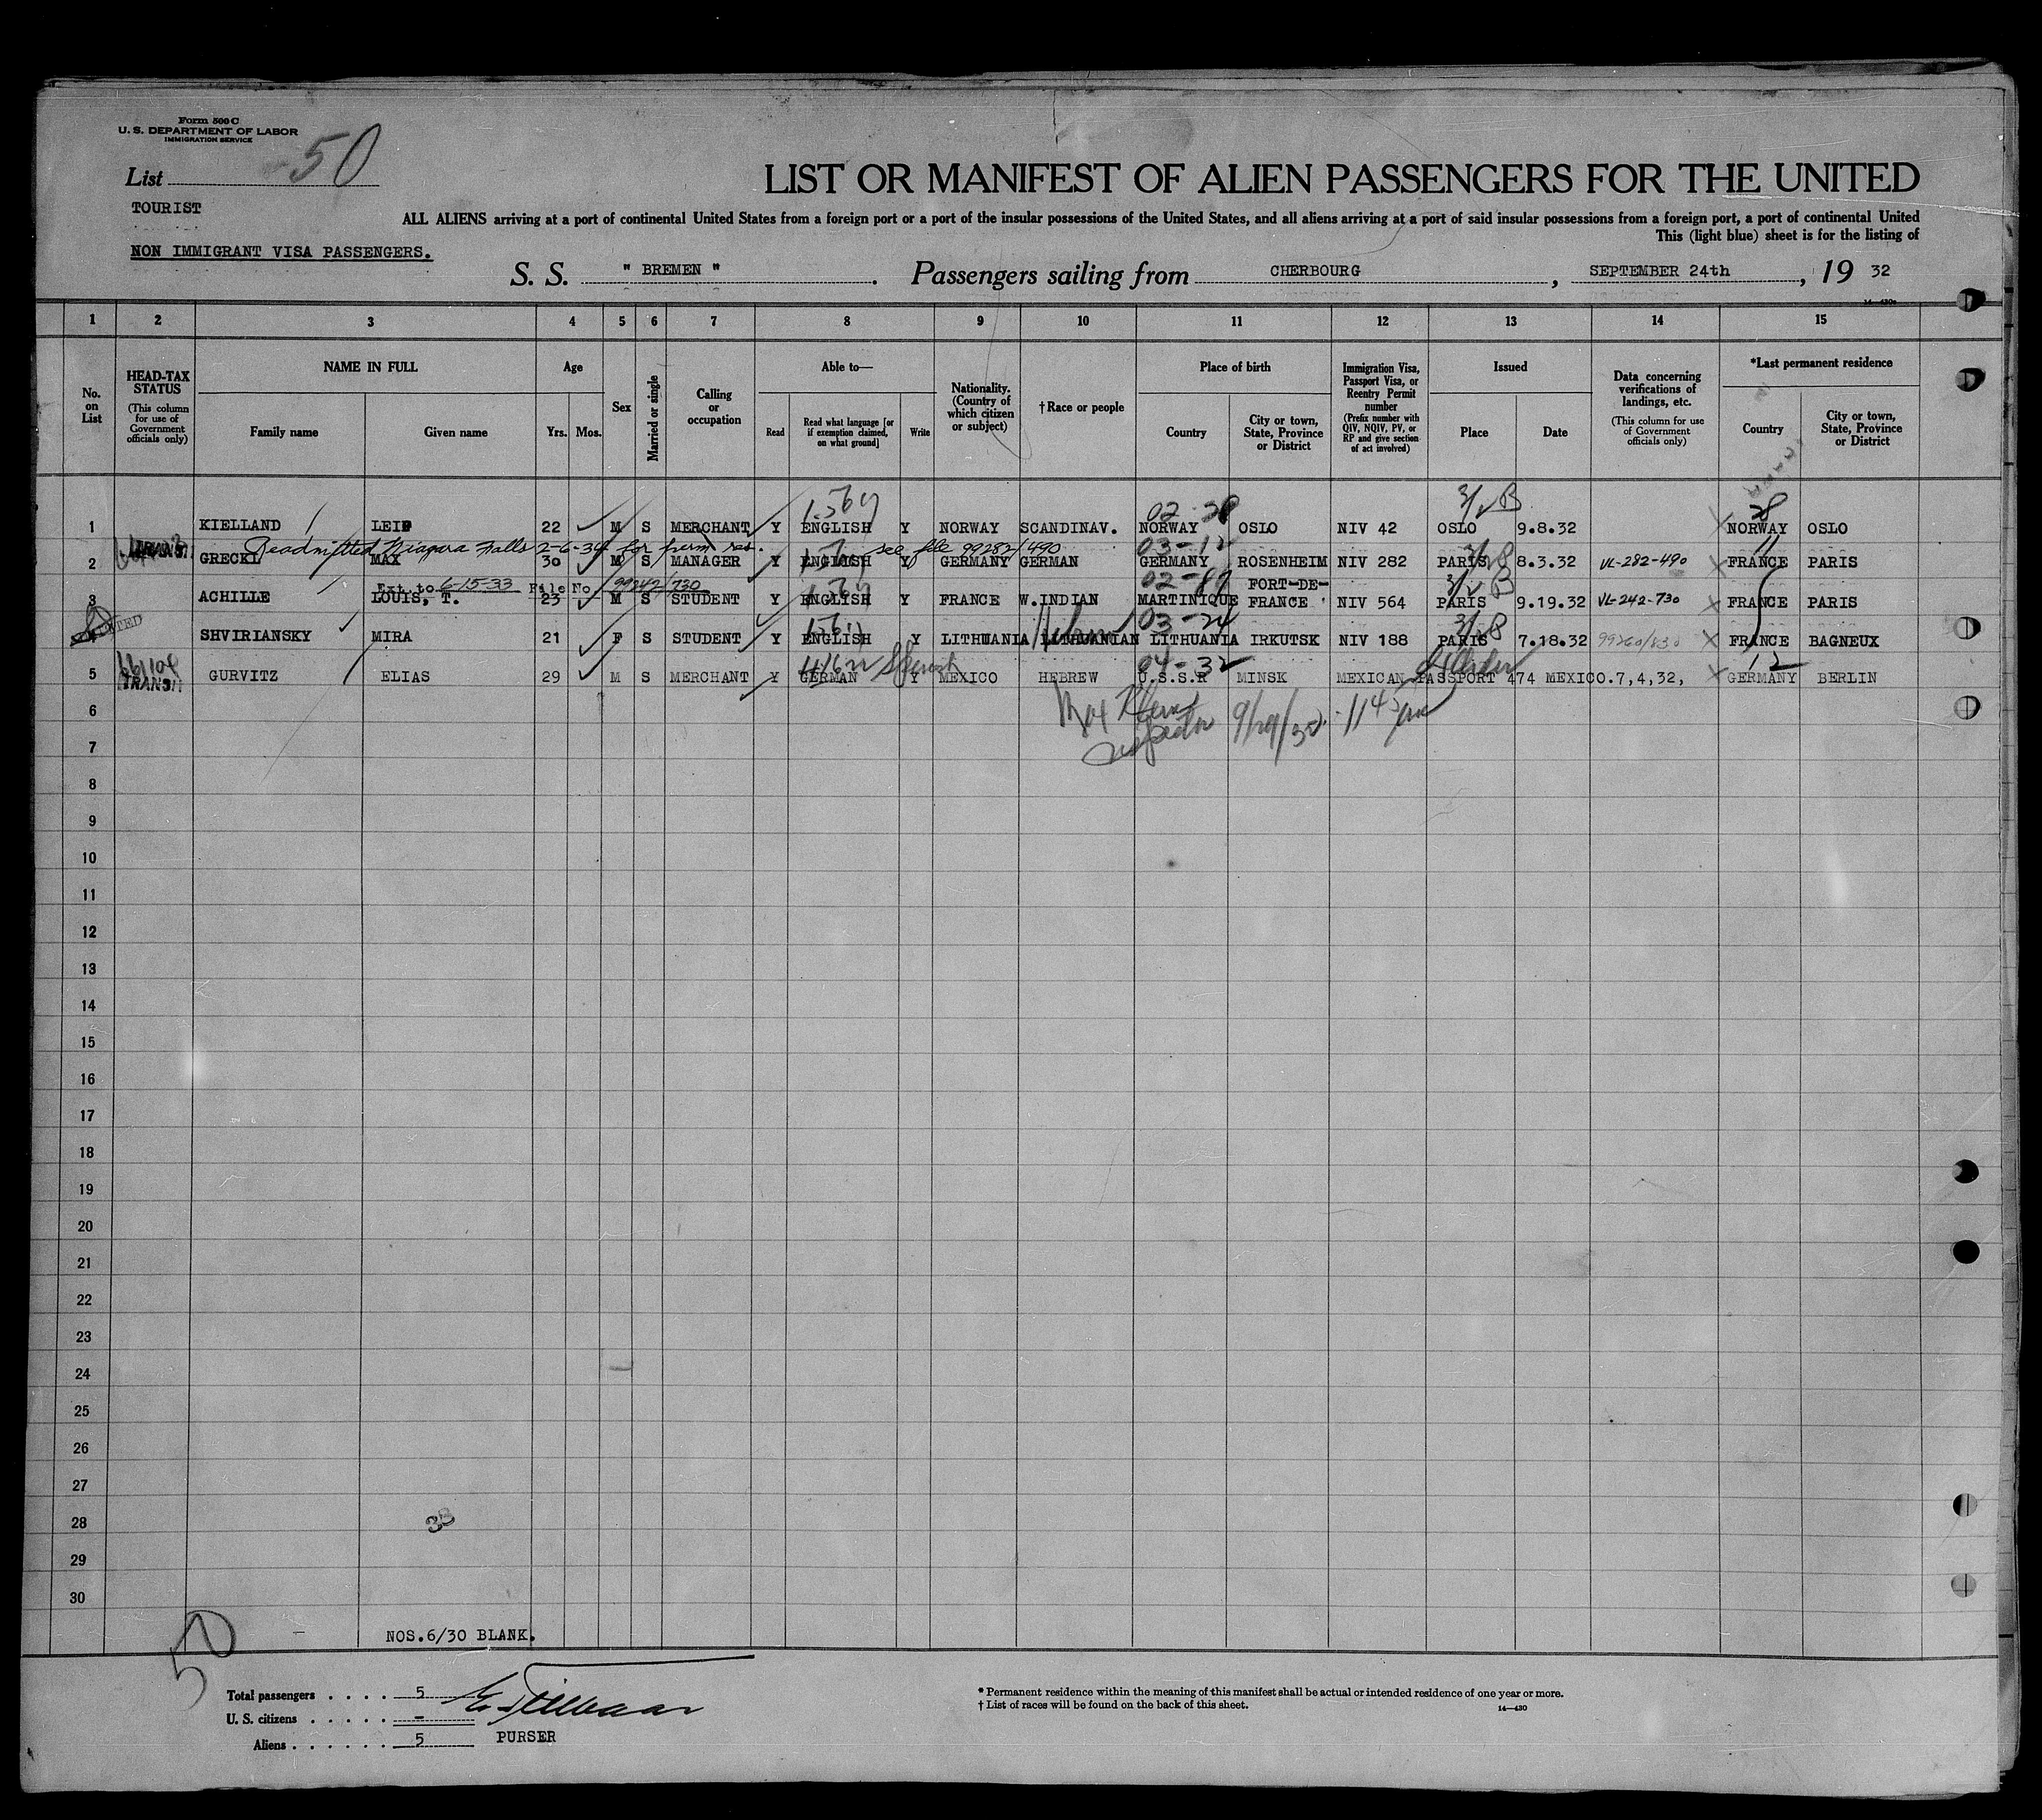 Form 500 C
U. S. DEPARTMENT OF LABOR
IMMIGRATION SERVICE
List 50
TOURIST
NON IMMIGRANT VISA PASSENGERS.
LIST OR MANIFEST OF ALIEN PASSENGERS FOR THE UNITED
ALL ALIENS arriving at a port of continental United States from a foreign port or a port of the insular possessions of the United States, and all aliens arriving at a port of said insular possessions from a foreign port, a port of continental United
This (light blue) sheet is for the listing of
S. S. " BREMEN ". Passengers sailing from CHERBOURG, SEPTEMBER 24th, 19 32
14—430
1 2 3 4 5 6 7 8 9 10 11 12 13 14 15
No. on List
HEAD-TAX STATUS
(This column for use of Government officials only)
NAME IN FULL
Family name
Given name
Age
Yrs.
Mos.
Sex
Married or single
Calling or occupation
Able to—
Read
Read what language [or if exemption claimed, on what ground]
Write
Nationality. (Country of which citizen or subject)
†Race or people
Place of birth
Country
City or town, State, Province or District
Immigration Visa, Passport Visa, or Reentry Permit number
(Prefix number with QIV, NQIV, PV, or RP and give section of act involved)
Issued
Place
Date
Data concerning verifications of landings, etc.
(This column for use of Government officials only)
*Last permanent residence
Country
City or town, State, Province or District
02-28 3/ B 28
1 KIELLAND LEIF 22 M S MERCHANT Y ENGLISH Y NORWAY SCANDINAV. NORWAY OSLO NIV 42 OSLO 9.8.32 NORWAY OSLO
Readmitted Niagara Falls 2-6-34 for perm res. see file 99282/490 03-12 11
2 GRECKL MAX 30 M S MANAGER Y ENGLISH Y GERMANY GERMAN GERMANY ROSENHEIM NIV 282 PARIS 8.3.32 VL-282-490 FRANCE PARIS
Ext to 6-15-33 File No 99242/730 FORT-DE-
3 ACHILLE LOUIS, T. 23 M S STUDENT Y ENGLISH Y FRANCE W.INDIAN MARTINIQUE FRANCE NIV 564 PARIS 9.19.32 VL-242-730 FRANCE PARIS
03-24
4 SHVIRIANSKY MIRA 21 F S STUDENT Y ENGLISH Y LITHUANIA Hebrew LITHUANIAN LITHUANIA IRKUTSK NIV 188 PARIS 7.18.32 99260/830 FRANCE BAGNEUX
Spanish 04-32 12
5 TRANSIT GURVITZ ELIAS 29 M S MERCHANT Y GERMAN Y MEXICO HEBREW U.S.S.R MINSK MEXICAN PASSPORT 474 MEXICO.7,4,32, GERMANY BERLIN
6
Inspector
7
8
9
10
11
12
13
14
15
16
17
18
19
20
21
22
23
24
25
26
27
28
29
30
NOS.6/30 BLANK.
50
Total passengers . . . . 5
U. S. citizens . . . . . –
Aliens . . . . . . 5
PURSER
* Permanent residence within the meaning of this manifest shall be actual or intended residence of one year or more.
† List of races will be found on the back of this sheet.
14—430